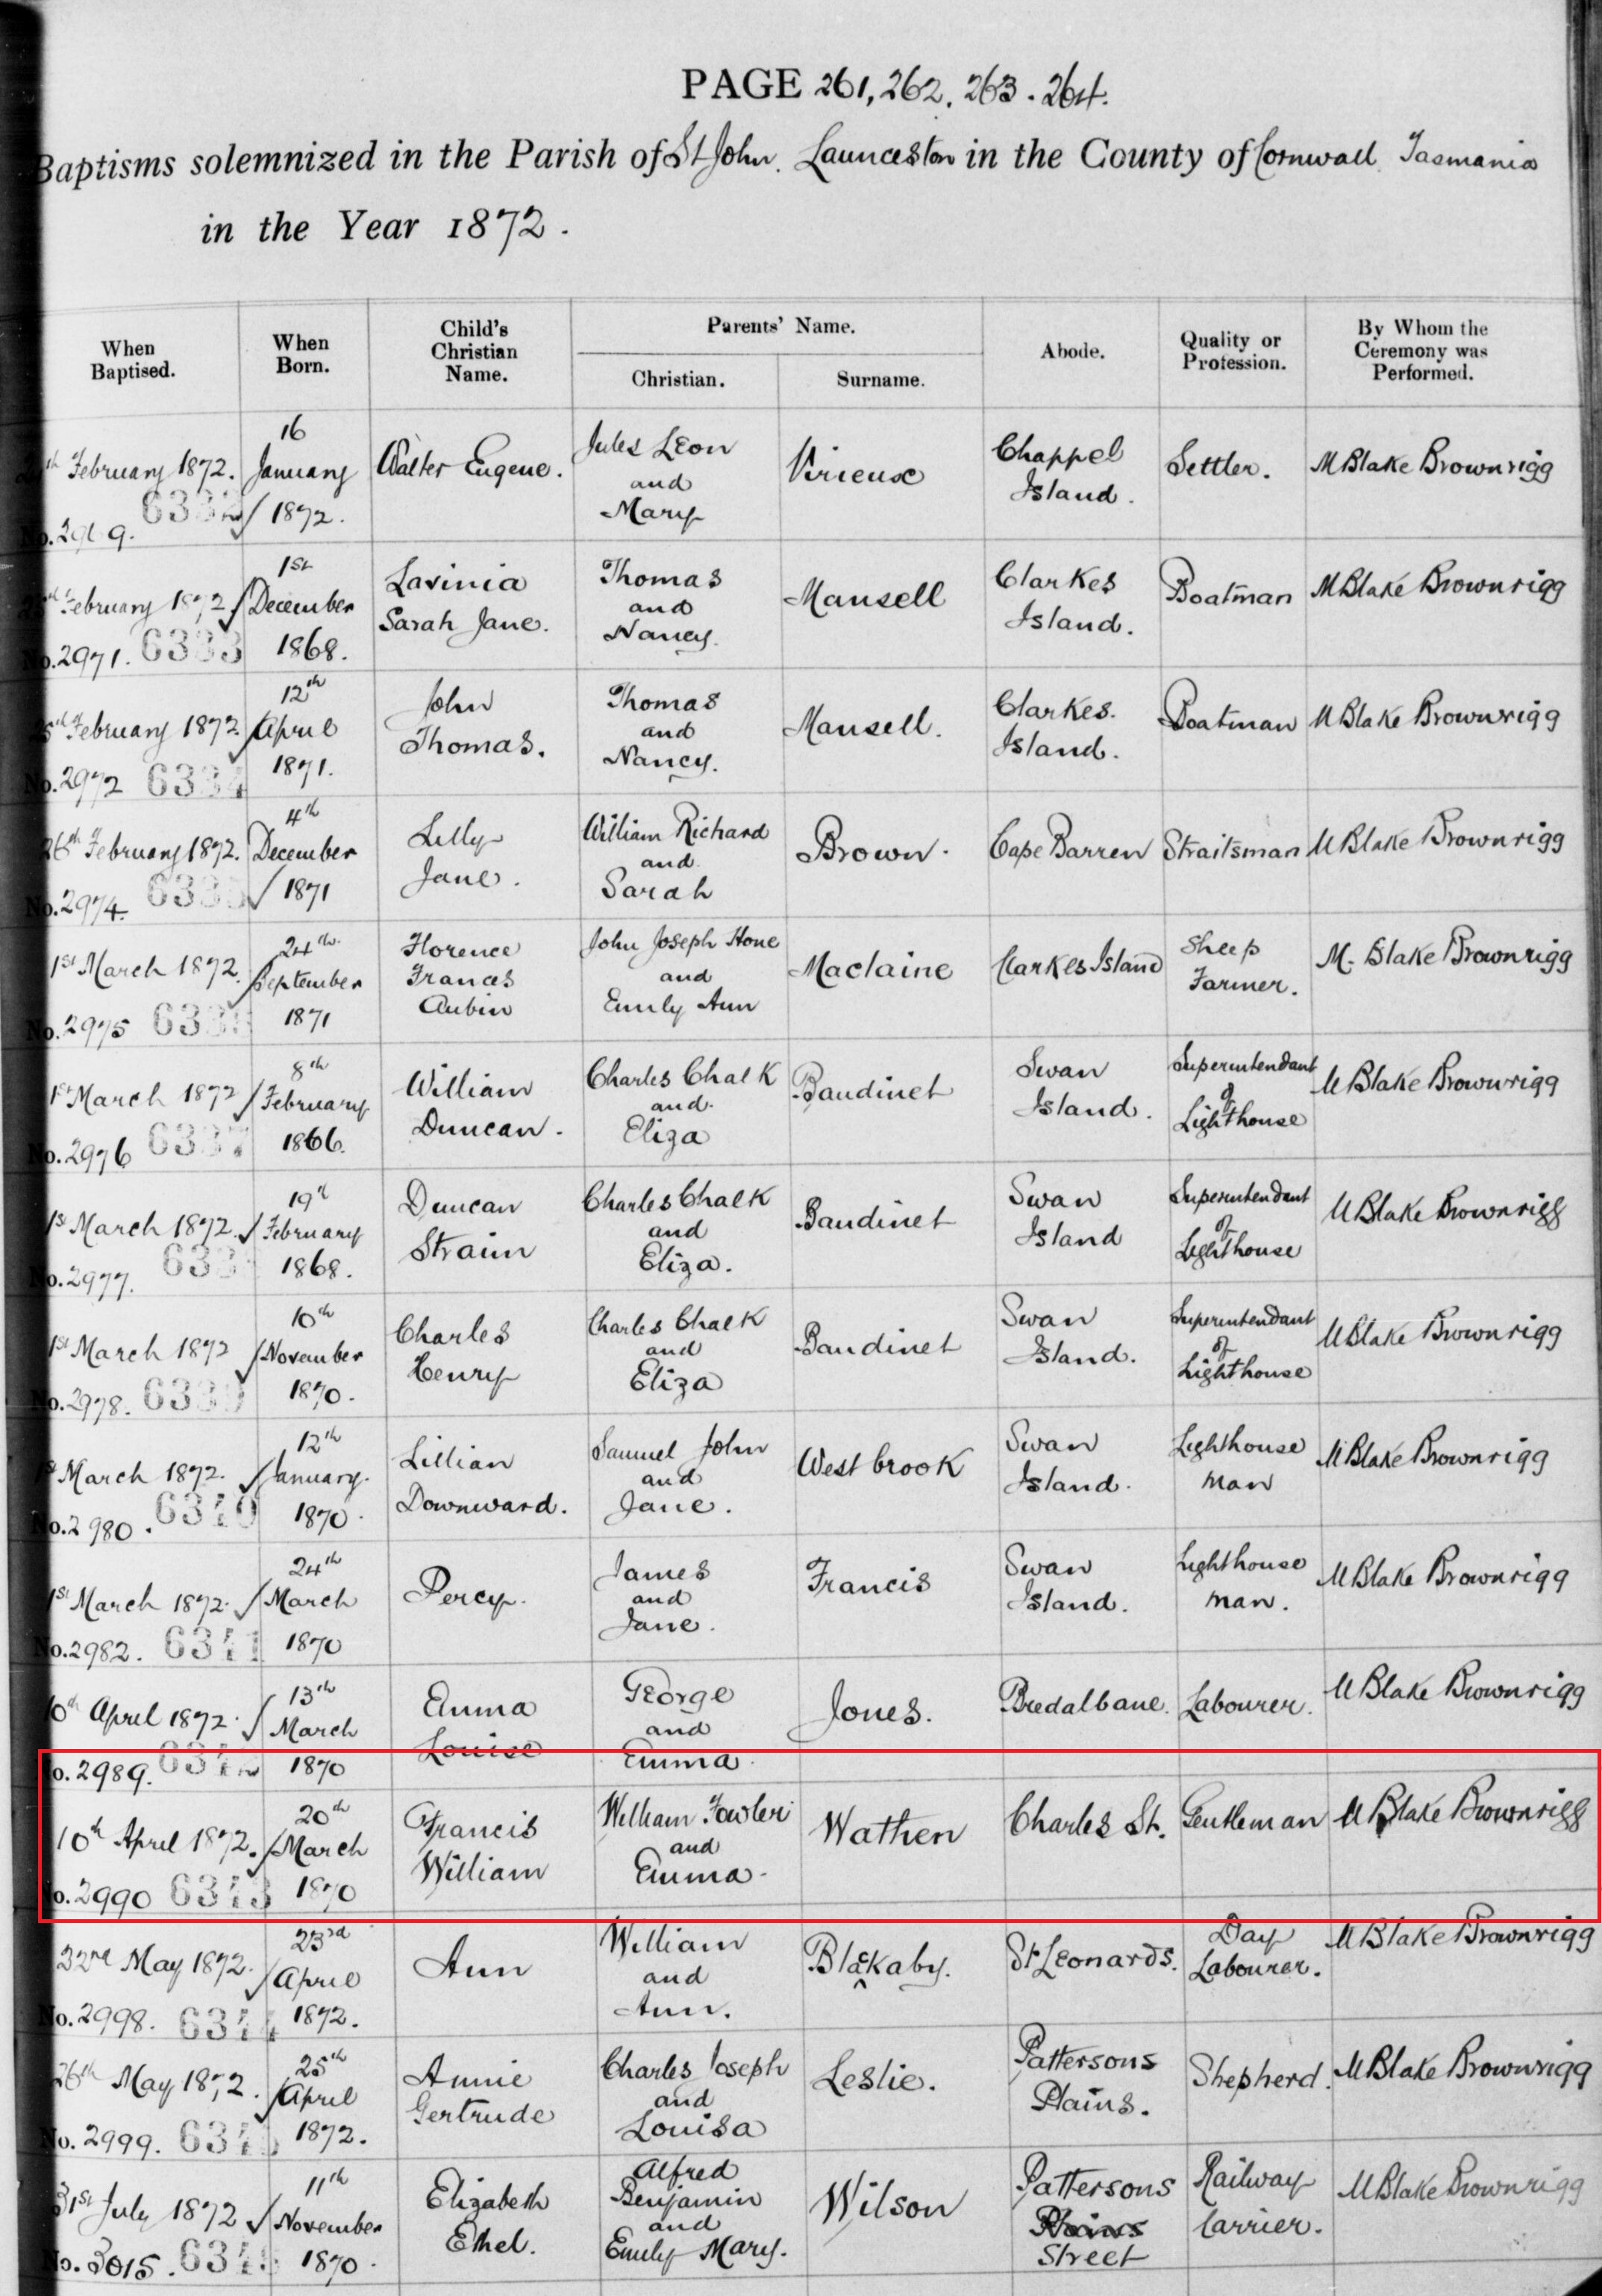 PAGE 261, 262, 263. 264.
Baptisms solemnized in the Parish of St John Launceston in the County of Cornwall Tasmania
in the Year 1872.
When Baptised. When Born. Child's Christian Name. Parents' Name. Christian. Surname. Abode. Quality or Profession. By Whom the Ceremony was Performed.
February 1872. 16 January 1872. Walter Eugene. Jules Leon and Mary Virieux Chappel Island. Settler. M Blake Brownrigg
No. 2969.
February 1872 1st December 1868. Lavinia Sarah Jane. Thomas and Nancy. Mansell Clarkes Island. Boatman M Blake Brownrigg
No. 2971. 6333
February 1872. 12th April 1871. John Thomas. Thomas and Nancy. Mansell. Clarkes. Island. Boatman M Blake Brownrigg
No. 2972 6334
26th February 1872. 4th December 1871 Lilly Jane. William Richard and Sarah Brown. Cape Barren Straitsman M Blake Brownrigg
No. 2974.
1st March 1872. 24th September 1871 Florence Frances Aubin John Joseph Hone and Emily Ann Maclaine Clarkes Island Sheep Farmer. M. Blake Brownrigg
No. 2975
1st March 1872 8th February 1866. William Duncan. Charles Chalk and Eliza Baudinet Swan Island. Superintendant of Lighthouse M Blake Brownrigg
No. 2976 6337
1st March 1872. 19th February 1868. Duncan Strain Charles Chalk and Eliza. Baudinet Swan Island Superintendant of Lighthouse M Blake Brownrigg
No. 2977.
1st March 1872 10th November 1870. Charles Henry Charles Chalk and Eliza Baudinet Swan Island. Superintendant of Lighthouse M Blake Brownrigg
No. 2978. 6339
1st March 1872. 12th January. 1870. Lillian Downward. Samuel John and Jane. Westbrook Swan Island. Lighthouse man M Blake Brownrigg
No. 2980. 6340
1st March 1872. 24th March 1870 Percy. James and Jane. Francis Swan Island. Lighthouse man. M Blake Brownrigg
No. 2982. 6341
10th April 1872. 13th March 1870 Emma Louise George and Emma Jones. Bredalbane. Labourer. M Blake Brownrigg
No. 2989. 6342
10th April 1872. 20th March 1870 Francis William William Fowler and Emma. Wathen Charles St. Gentleman M Blake Brownrigg
No. 2990 6343
22nd May 1872. 23rd April 1872. Ann William and Ann. Blackaby. St Leonards. Day Labourer. M Blake Brownrigg
No. 2998. 6344
26th May 1872. 25th April 1872. Annie Gertrude Charles Joseph and Louisa Leslie. Pattersons Plains. Shepherd. M Blake Brownrigg
No. 2999.
31st July 1872 11th November 1870. Elizabeth Ethel. Alfred Benjamin and Emily Mary. Wilson Pattersons Plains Street Railway Carrier. M Blake Brownrigg
No. 3015.